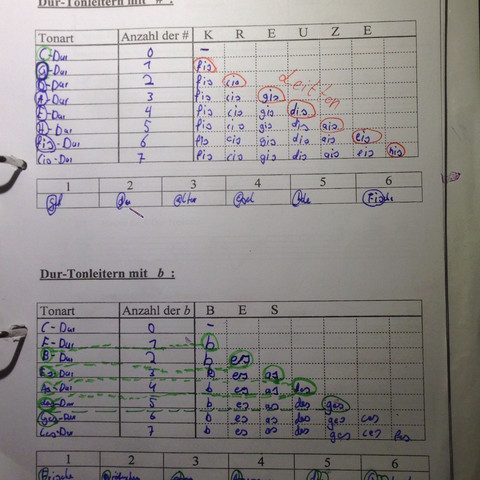 Dur-Tonleitern mit # :
Tonart Anzahl der # K R E U Z E
C-Dur 0 –
G-Dur 1 fis
D-Dur 2 fis cis Leitton
A-Dur 3 fis cis gis
E-Dur 4 fis cis gis dis
H-Dur 5 fis cis gis dis ais
Fis-Dur 6 fis cis gis dis ais eis
Cis-Dur 7 fis cis gis dis ais eis his
1 2 3 4 5 6
Du alter Esel Fische
Dur-Tonleitern mit b :
Tonart Anzahl der b B E S
C-Dur 0 –
F-Dur 1 b
B-Dur 2 b es
Es-Dur 3 b es as
As-Dur 4 b es as des
Des-Dur 5 b es as des ges
Ges-Dur 6 b es as des ges ces
Ces-Dur 7 b es as des ges ces fes
1 2 3 4 5 6
Frische